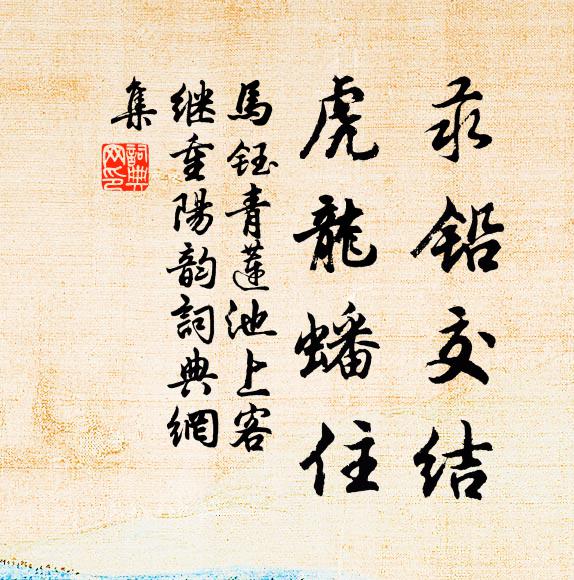 汞铅交结
虎龍蟠住
馬钰青蓮池上客
继重陽韵詞典網
集
詞典
网印